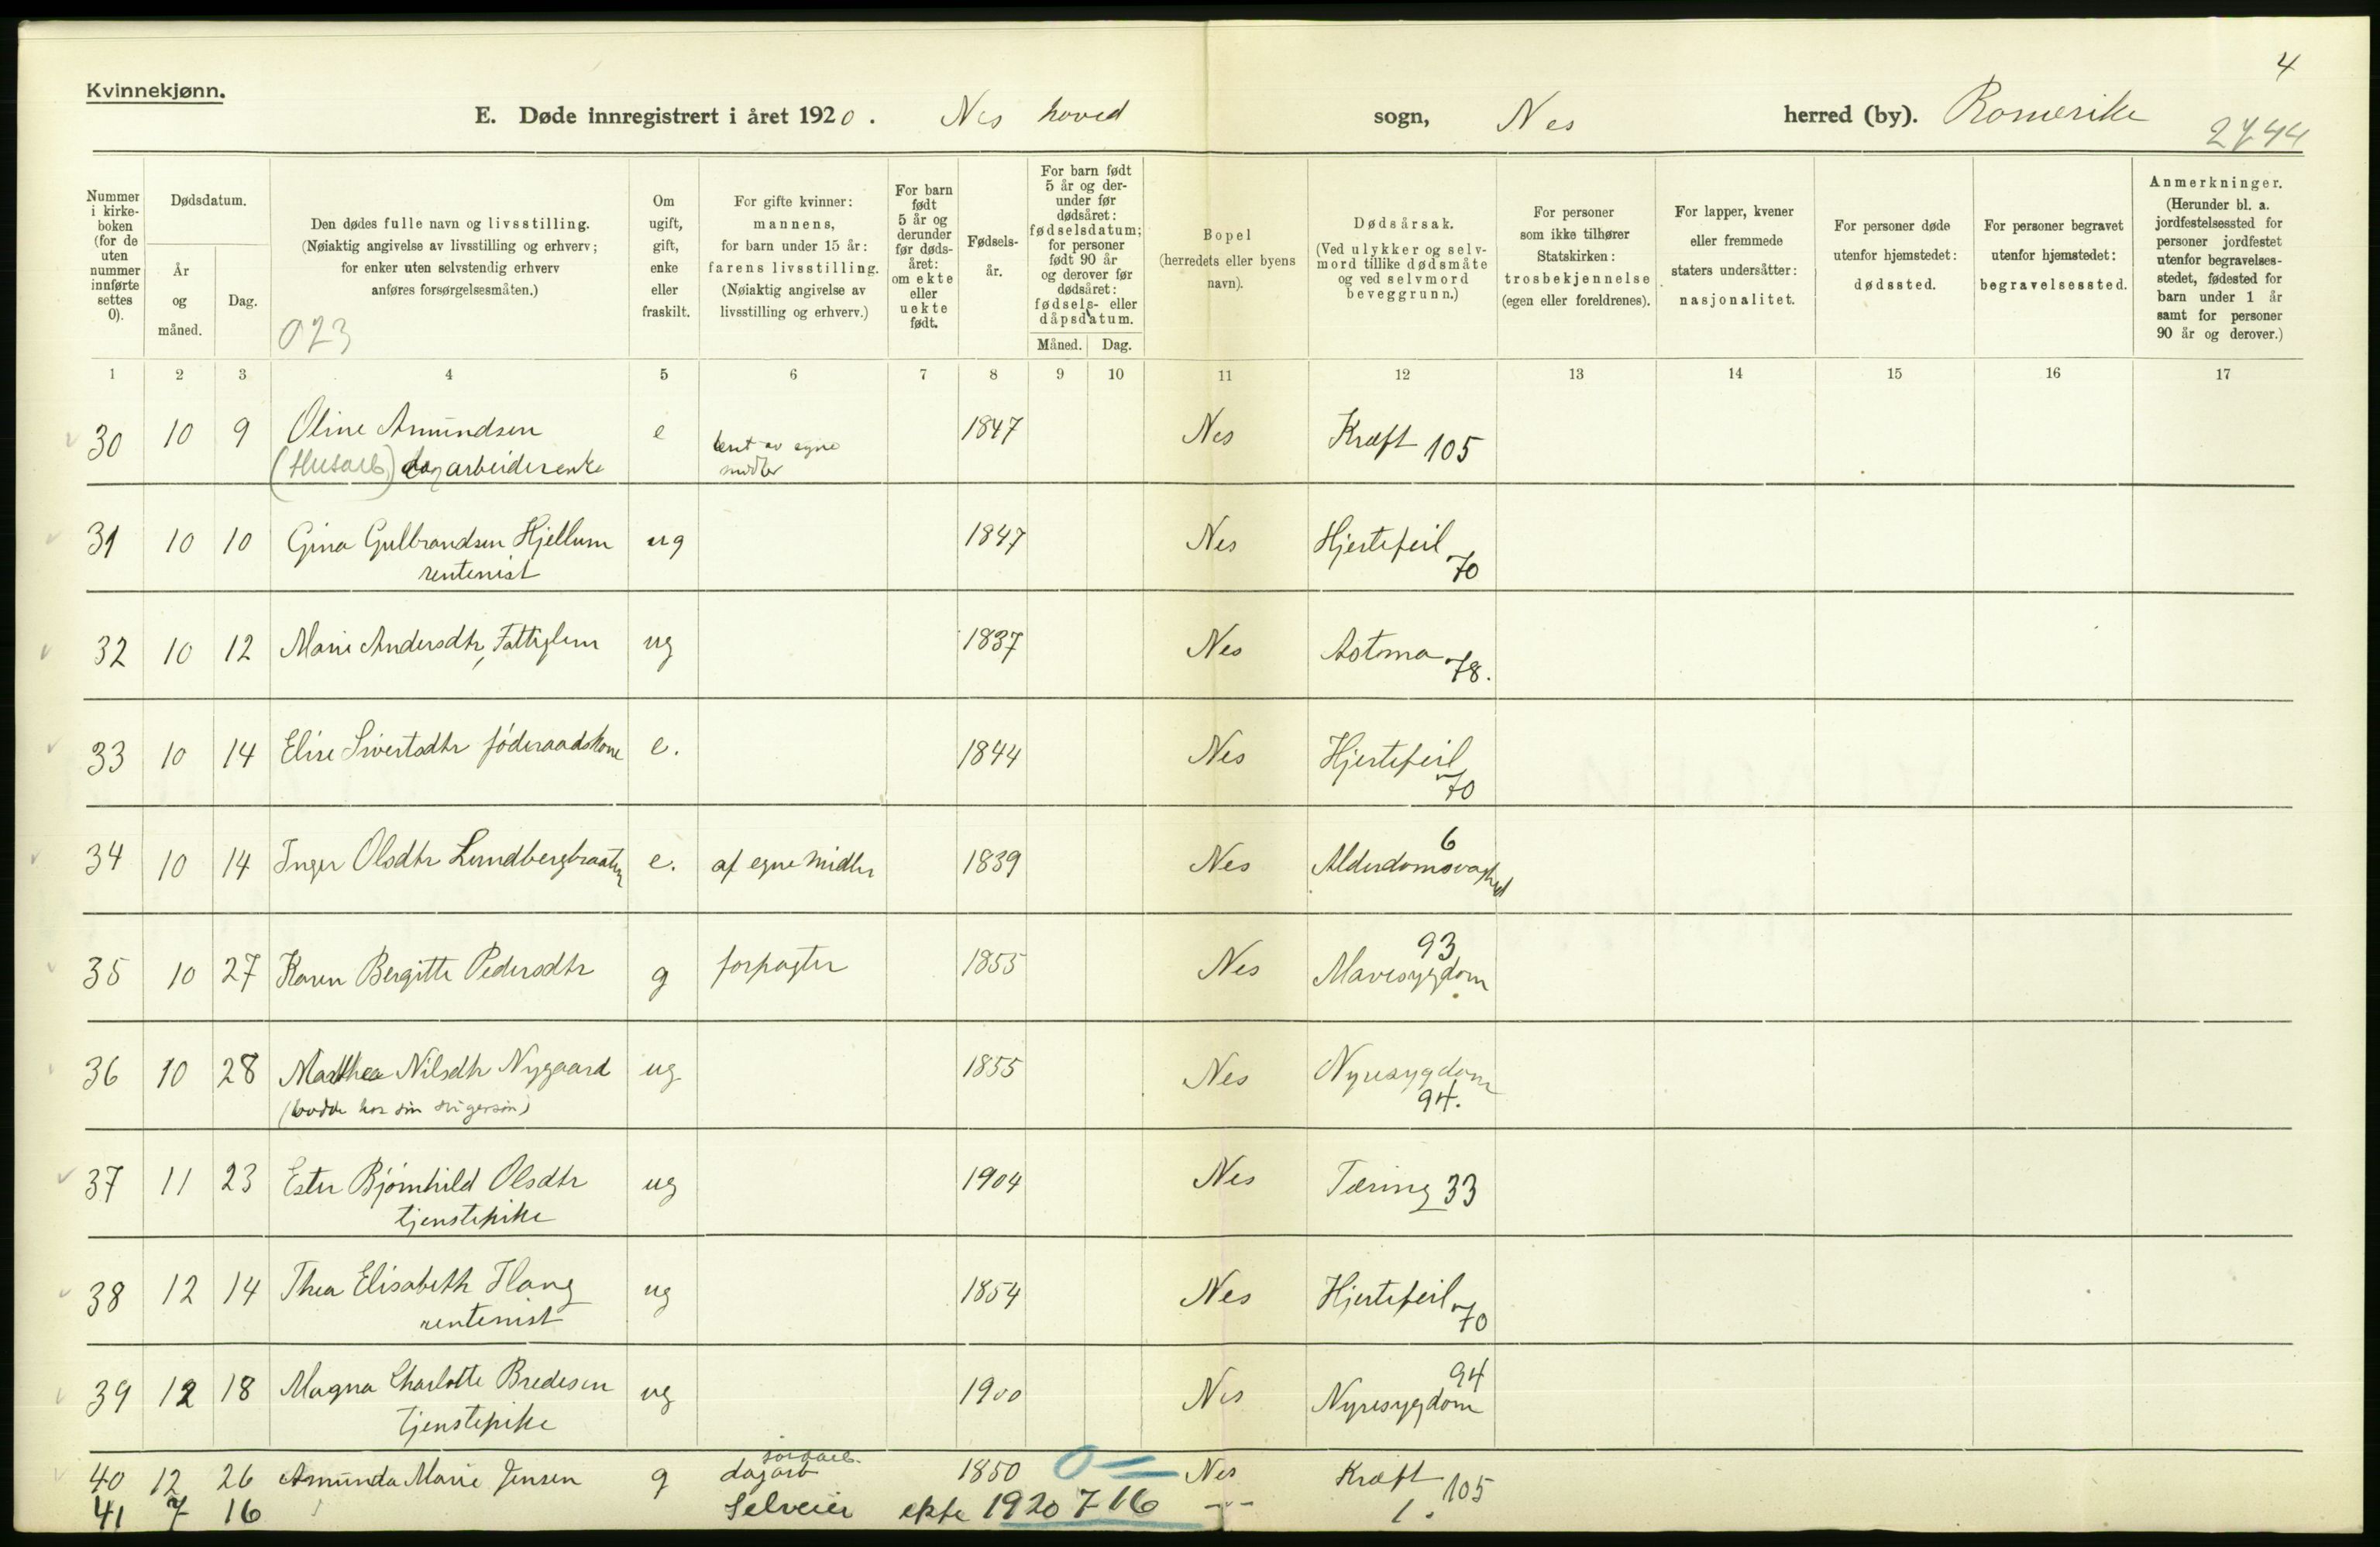 4
Kvinnekjønn.
E. Døde innregistrert i året 1920. Nes hoved sogn, Nes herred (by). Romerike
2744
Nummer i kirke-boken (for de uten nummer innførte settes 0).
Dødsdatum.
År og måned.
Dag.
Den dødes fulle navn og livsstilling.
(Nøiaktig angivelse av livsstilling og erhverv;
for enker uten selvstendig erhverv
anføres forsørgelsesmåten.)
023
Om ugift, gift, enke eller fraskilt.
For gifte kvinner:
mannens,
for barn under 15 år:
farens livsstilling.
(Nøiaktig angivelse av
livsstilling og erhverv.)
For barn født 5 år og derunder før døds-året: om ekte eller uekte født.
Fødsels-år.
For barn født 5 år og der-under før dødsåret: fødselsdatum; for personer født 90 år og derover før dødsåret: fødsels- eller dåpsdatum.
Måned. Dag.
Bopel
(herredets eller byens
navn).
Dødsårsak.
(Ved ulykker og selv-
mord tillike dødsmåte
og ved selvmord
beveggrunn.)
For personer
som ikke tilhører
Statskirken:
trosbekjennelse
(egen eller foreldrenes).
For lapper, kvener
eller fremmede
staters undersåtter:
nasjonalitet.
For personer døde
utenfor hjemstedet:
dødssted.
For personer begravet
utenfor hjemstedet:
begravelsessted.
Anmerkninger.
(Herunder bl. a.
jordfestelsessted for
personer jordfestet
utenfor begravelses-
stedet, fødested for
barn under 1 år
samt for personer
90 år og derover.)
1 2 3 4 5 6 7 8 9 10 11 12 13 14 15 16 17
30 10 9 Oline Amundsen e levet av egne 1847 Nes Kræft 105
(Husarb.) dagarbeiderenke midler
31 10 10 Gina Gulbrandsen Hjellum ug 1847 Nes Hjertefeil 70
rentenist
32 10 12 Marie Andersdtr, Fattiglem ug 1837 Nes Astma 78.
33 10 14 Elise Sivertsdtr föderaadskone e. 1844 Nes Hjertefeil 70
34 10 14 Inger Olsdtr Lundbergbraaten e. af egne midler 1839 Nes Alderdomsvaghed 6
35 10 27 Karen Bergitte Pedersdtr g forpagter 1855 Nes Mavesygdom 93
36 10 28 Mathea Nilsdtr Nygaard ug 1855 Nes Nyresygdom 94.
(bodde hos sin svigersøn)
37 11 23 Ester Bjørnhild Olsdtr ug 1904 Nes Tæring 33
tjenstepike
38 12 14 Thea Elisabeth Haug ug 1854 Nes Hjertefeil 70
rentenist
39 12 18 Magna Charlotte Bredesen ug 1900 Nes Nyresygdom 94
tjenstepike
jordarb.
40 12 26 Amunda Marie Jensen g dagarb 1850 0 — Nes Kræft 105
41 7 16 Selveier ekte 1920 7 16 -"- 1.